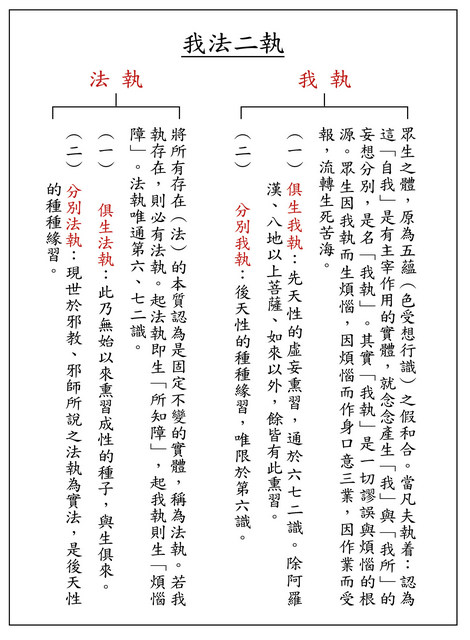 我法二執
我執
眾生之體，原為五蘊（色受想行識）之假和合。當凡夫執着：認為
這「自我」是有主宰作用的實體，就念念產生「我」與「我所」的
妄想分別，是名「我執」。其實「我執」是一切謬誤與煩惱的根
源。眾生因我執而生煩惱，因煩惱而作身口意三業，因作業而受
報，流轉生死苦海。
（一）俱生我執：先天性的虛妄熏習，通於六七二識。除阿羅
漢、八地以上菩薩、如來以外，餘皆有此熏習。
（二）分別我執：後天性的種種緣習，唯限於第六識。
法執
將所有存在（法）的本質認為是固定不變的實體，稱為法執。若我
執存在，則必有法執。起法執即生「所知障」，起我執則生「煩惱
障」。法執唯通第六、七二識。
（一）俱生法執：此乃無始以來熏習成性的種子，與生俱來。
（二）分別法執：現世於邪教、邪師所說之法執為實法，是後天性
的種種緣習。